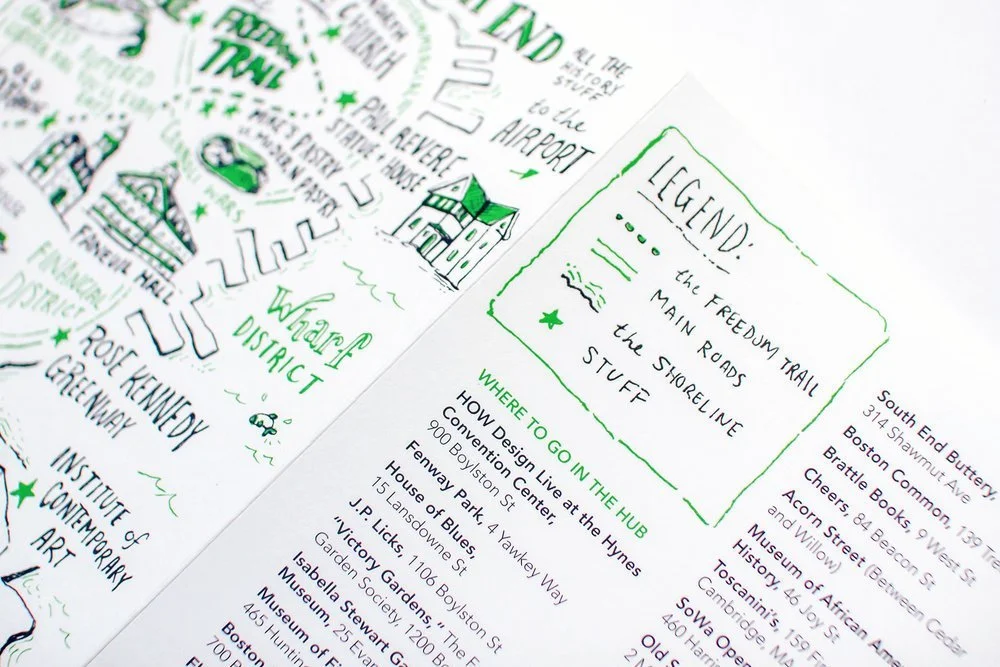 FREEDOM
TRAIL
CHURCH
END
ALL THE
HISTORY
STUFF
to the
AIRPORT
PAUL REVERE
STATUE + HOUSE
MIKE'S PASTRY
MODERN PASTRY
OLD
FANEUIL HALL
FINANCIAL
DISTRICT
Wharf
DISTRICT
ROSE KENNEDY
GREENWAY
INSTITUTE of
CONTEMPORARY
ART
LEGEND:
the FREEDOM TRAIL
MAIN ROADS
the SHORELINE
STUFF
WHERE TO GO IN THE HUB
HOW Design Live at the Hynes
Convention Center,
900 Boylston St
Fenway Park, 4 Yawkey Way
House of Blues,
15 Lansdowne St
J.P. Licks, 1106 Boylston St
"Victory Gardens," The F
Garden Society, 1200 Bo
Isabella Stewart Ga
Museum, 25 Evan
Museum of F
465 Huntin
Boston
700 B
South End Buttery,
314 Shawmut Ave
Boston Common, 139 Tre
Brattle Books, 9 West St
Cheers, 84 Beacon St
Acorn Street (Between Cedar
and Willow)
Museum of African Ame
History, 46 Joy St
Toscanini's, 159 F
Cambridge, Ma
SoWa Open
460 Harri
Old S